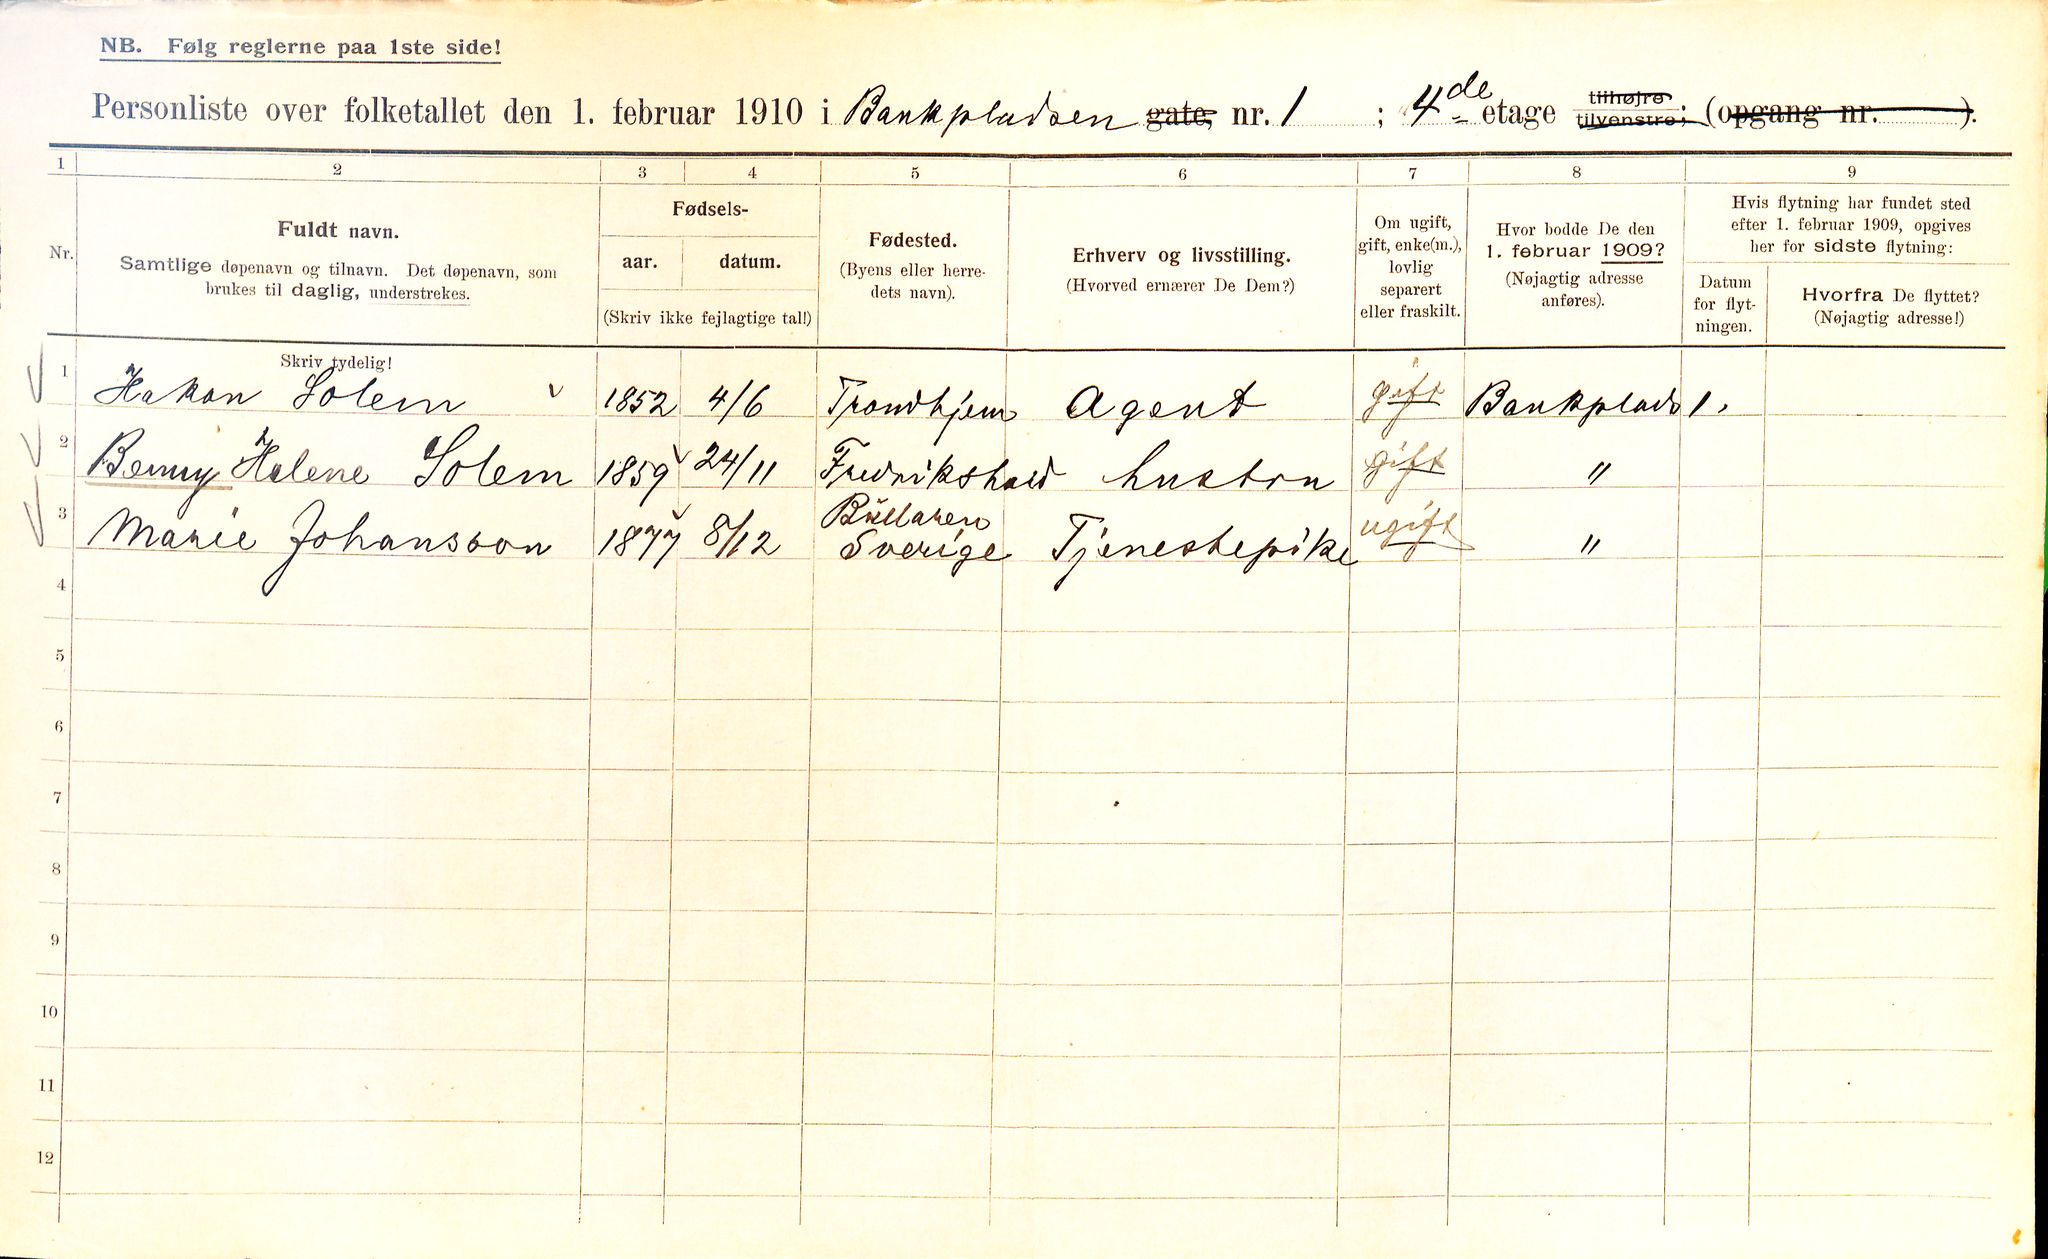 NB. Følg reglerne paa 1ste side!
Personliste over folketallet den 1. februar 1910 i Bankpladsen gate, nr. 1 ; 4de etage tilhøjre tilvenstre; (opgang nr. ).
1 2 3 4 5 6 7 8 9
Nr.
Fuldt navn.
Samtlige døpenavn og tilnavn. Det døpenavn, som
brukes til daglig, understrekes.
Skriv tydelig!
Fødsels-
aar. datum.
(Skriv ikke fejlagtige tal!)
Fødested.
(Byens eller herre-
dets navn).
Erhverv og livsstilling.
(Hvorved ernærer De Dem?)
Om ugift,
gift, enke(m.),
lovlig
separert
eller fraskilt.
Hvor bodde De den
1. februar 1909?
(Nøjagtig adresse
anføres).
Hvis flytning har fundet sted
efter 1. februar 1909, opgives
her for sidste flytning:
Datum
for flyt-
ningen.
Hvorfra De flyttet?
(Nøjagtig adresse!)
1 Hakon Solem 1852 4/6 Trondhjem Agent gift Bankplads 1.
2 Benny Helene Solem 1859 24/11 Fredrikshald hustru gift "
3 Marie Johansson 1877 8/12 Bullaren Sverige Tjenestepike ugift "
4
5
6
7
8
9
10
11
12